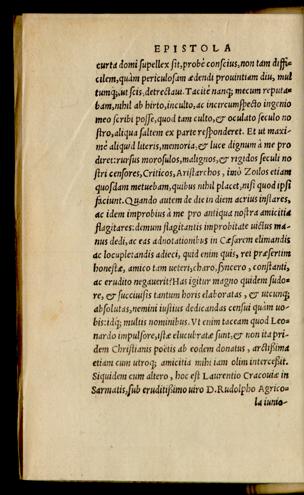 EPISTOLA
curta domi supellex sit, probè conscius, non tam diffi-
cilem, quàm periculosam ædendi prouintiam diu, mul
tumq;, ut scis, detrectaui. Tacitè nanq; mecum reputa-
bam, nihil ab hirto, inculto, ac incircumspecto ingenio
meo scribi posse, quod tam culto, & oculato seculo no
stro, aliqua saltem ex parte responderet. Et ut maxi-
mè aliquid literis, memoria, & luce dignum à me pro
diret: rursus morosulos, malignos, & rigidos seculi no
stri censores, Criticos, Aristarchos, imò Zoilos etiam
quosdam metuebam, quibus nihil placet, nisi quod ipsi
faciunt. Quando autem de die in diem acrius instares,
ac idem improbius à me pro antiqua nostra amicitia
flagitares: demum flagitantis improbitate uictus ma-
nus dedi, ac eas adnotationibus in Cæsarem elimandis
ac locupletandis adieci, quid enim quis, ret præsertim
honestæ, amico tam ueteri, charo, syncero, constanti,
ac erudito negauerit? Has igitur magno quidem sudo-
re, & succiuisis tantum horis elaboratas, & utcunq;
absolutas, nemini iustius dedicandas censui quàm uo-
bis: idq; multis nominibus. Vt enim taceam quod Leo-
nardo impulsore, istæ elucubratæ sunt, & non ita pri-
dem Christianis poëtis ab eodem donatus, arctissima
etiam cum utroq; amicitia mihi iam olim intercessit.
Siquidem cum altero, hoc est Laurentio Cracouiæ in
Sarmatis, sub eruditissimo uiro D. Rudolpho Agrico-
la iunio-